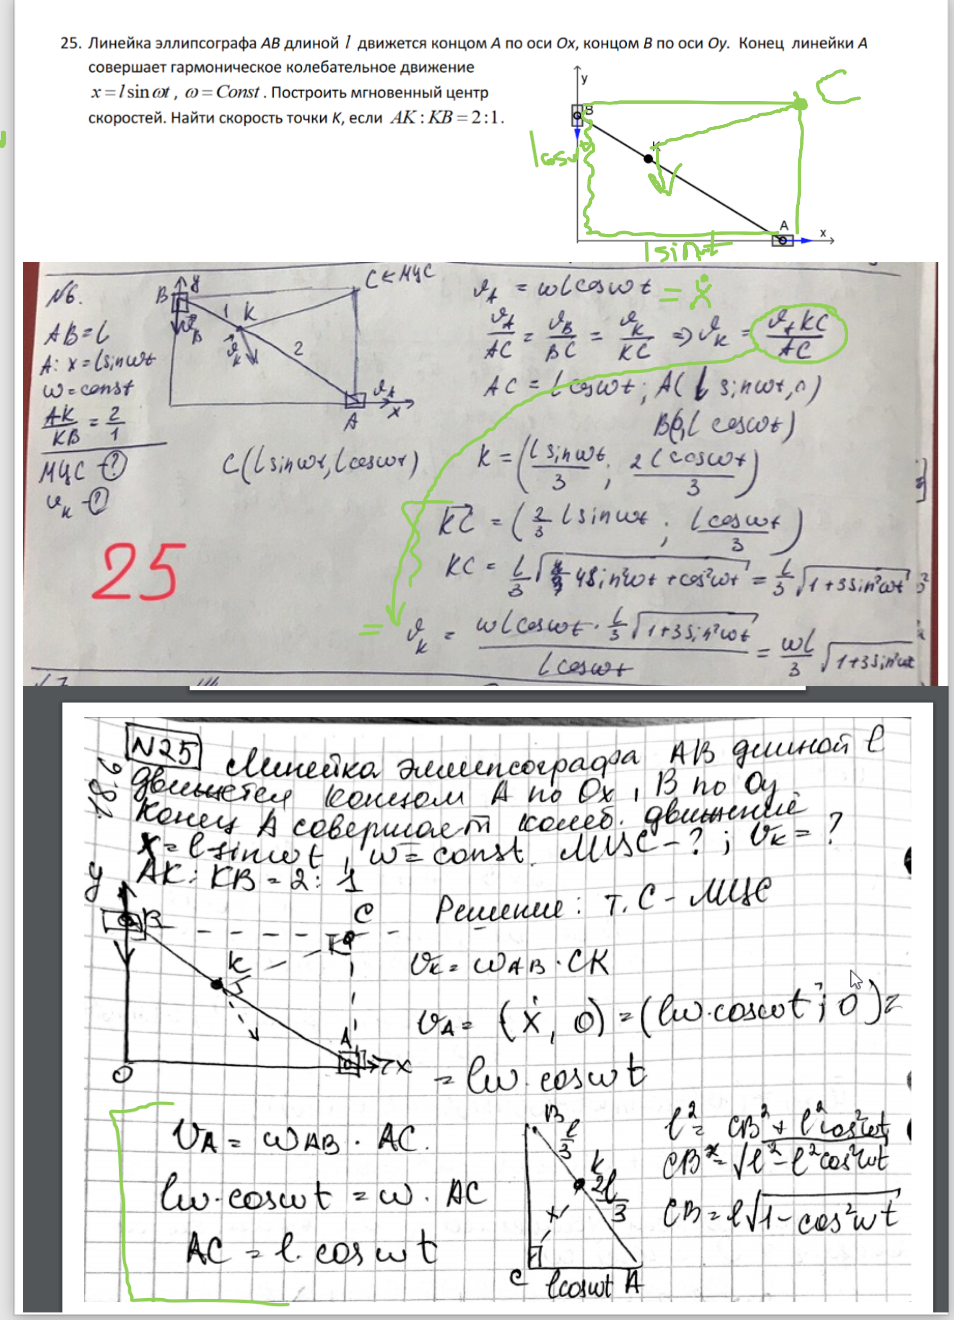 25. Линейка эллипсографа АВ длиной l движется концом А по оси Ох, концом В по оси Оу. Конец линейки А
совершает гармоническое колебательное движение
x = l sin ωt , ω = Const . Построить мгновенный центр
скоростей. Найти скорость точки К, если AK : KB = 2:1.
y
C
B
K
A
x
l sin t
№6.
AB = l
A: x = l sin ωt
ω = const
AK/KB = 2/1
МЦС - ?
v_K - ?
25
B
y
1
K
C ← МЦС
v_B
v_K
2
v_A
A
x
C(l sin ωt, l cos ωt)
v_A = ωl cos ωt = ẋ
v_A/AC = v_B/BC = v_K/KC ⇒ v_K = v_A KC/AC
AC = l cos ωt ; A(l sin ωt, 0)
B(0, l cos ωt)
K = (l sin ωt/3 ; 2 l cos ωt/3)
KC = (2/3 l sin ωt ; l cos ωt/3)
KC = l/3 √4 sin²ωt + cos²ωt = l/3 √1+3 sin²ωt
= v_K = ωl cos ωt · l/3 √1+3 sin²ωt / l cos ωt = ωl/3 √1+3 sin²ωt
N25 Линейка эллипсографа AB длиной l
движется концом A по Ox, B по Oy
Конец A совершает колеб. движение
x = l·sin ωt, ω = const. МЦС - ? ; v_K = ?
AK : KB = 2 : 1
y
B
C
K
A
x
O
Решение: т. C - МЦС
v_K = ω_AB · CK
v_A = (ẋ, 0) = (lω·cos ωt ; 0) =
= lω · cos ωt
v_A = ω_AB · AC.
lω · cos ωt = ω · AC
AC = l · cos ωt
B
l/3
K
2l/3
x
C
l cos ωt
A
l² = CB² + l² cos² ωt
CB = √l² - l² cos² ωt
CB = l √1 - cos² ωt